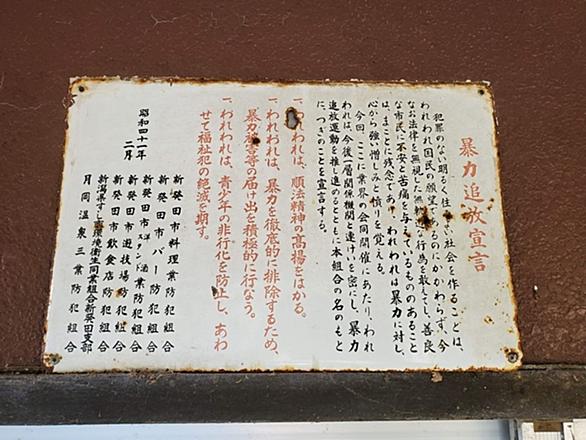 暴力追放宣言
犯罪のない明るく住みよい社会を作ることは、
われわれ国民の願望であるのにかかわらず、今
なお法律を無視した無 行為を敢えてし、善良
な市民に不安と苦痛を与えているもののあること
は、まことに残念であり、われわれは暴力に対し、
心から強い憎しみと憤りを覚える。
今回、ここに業界の会同開催にあたり、われ
われは、今後一層関係機関と連けいを密にし、暴力
追放運動を推し進めるとともに本組合の名のもと
に、つぎのことを宣言する。
一、われわれは、順法精神の高揚をはかる。
一、われわれは、暴力を徹底的に排除するため、
暴力 等の届け出を積極的に行なう。
一、われわれは、青少年の非行化を防止し、あわ
せて福祉犯の絶滅を期す。
昭和四十一年
二月
新発田市料理業防犯組合
新発田市バー防犯組合
新発田市 業防犯組合
新発田市遊技場防犯組合
新発田市飲食店防犯組合
新潟県すし 環境衛生同業組合新発田支部
月岡温泉三業防犯組合